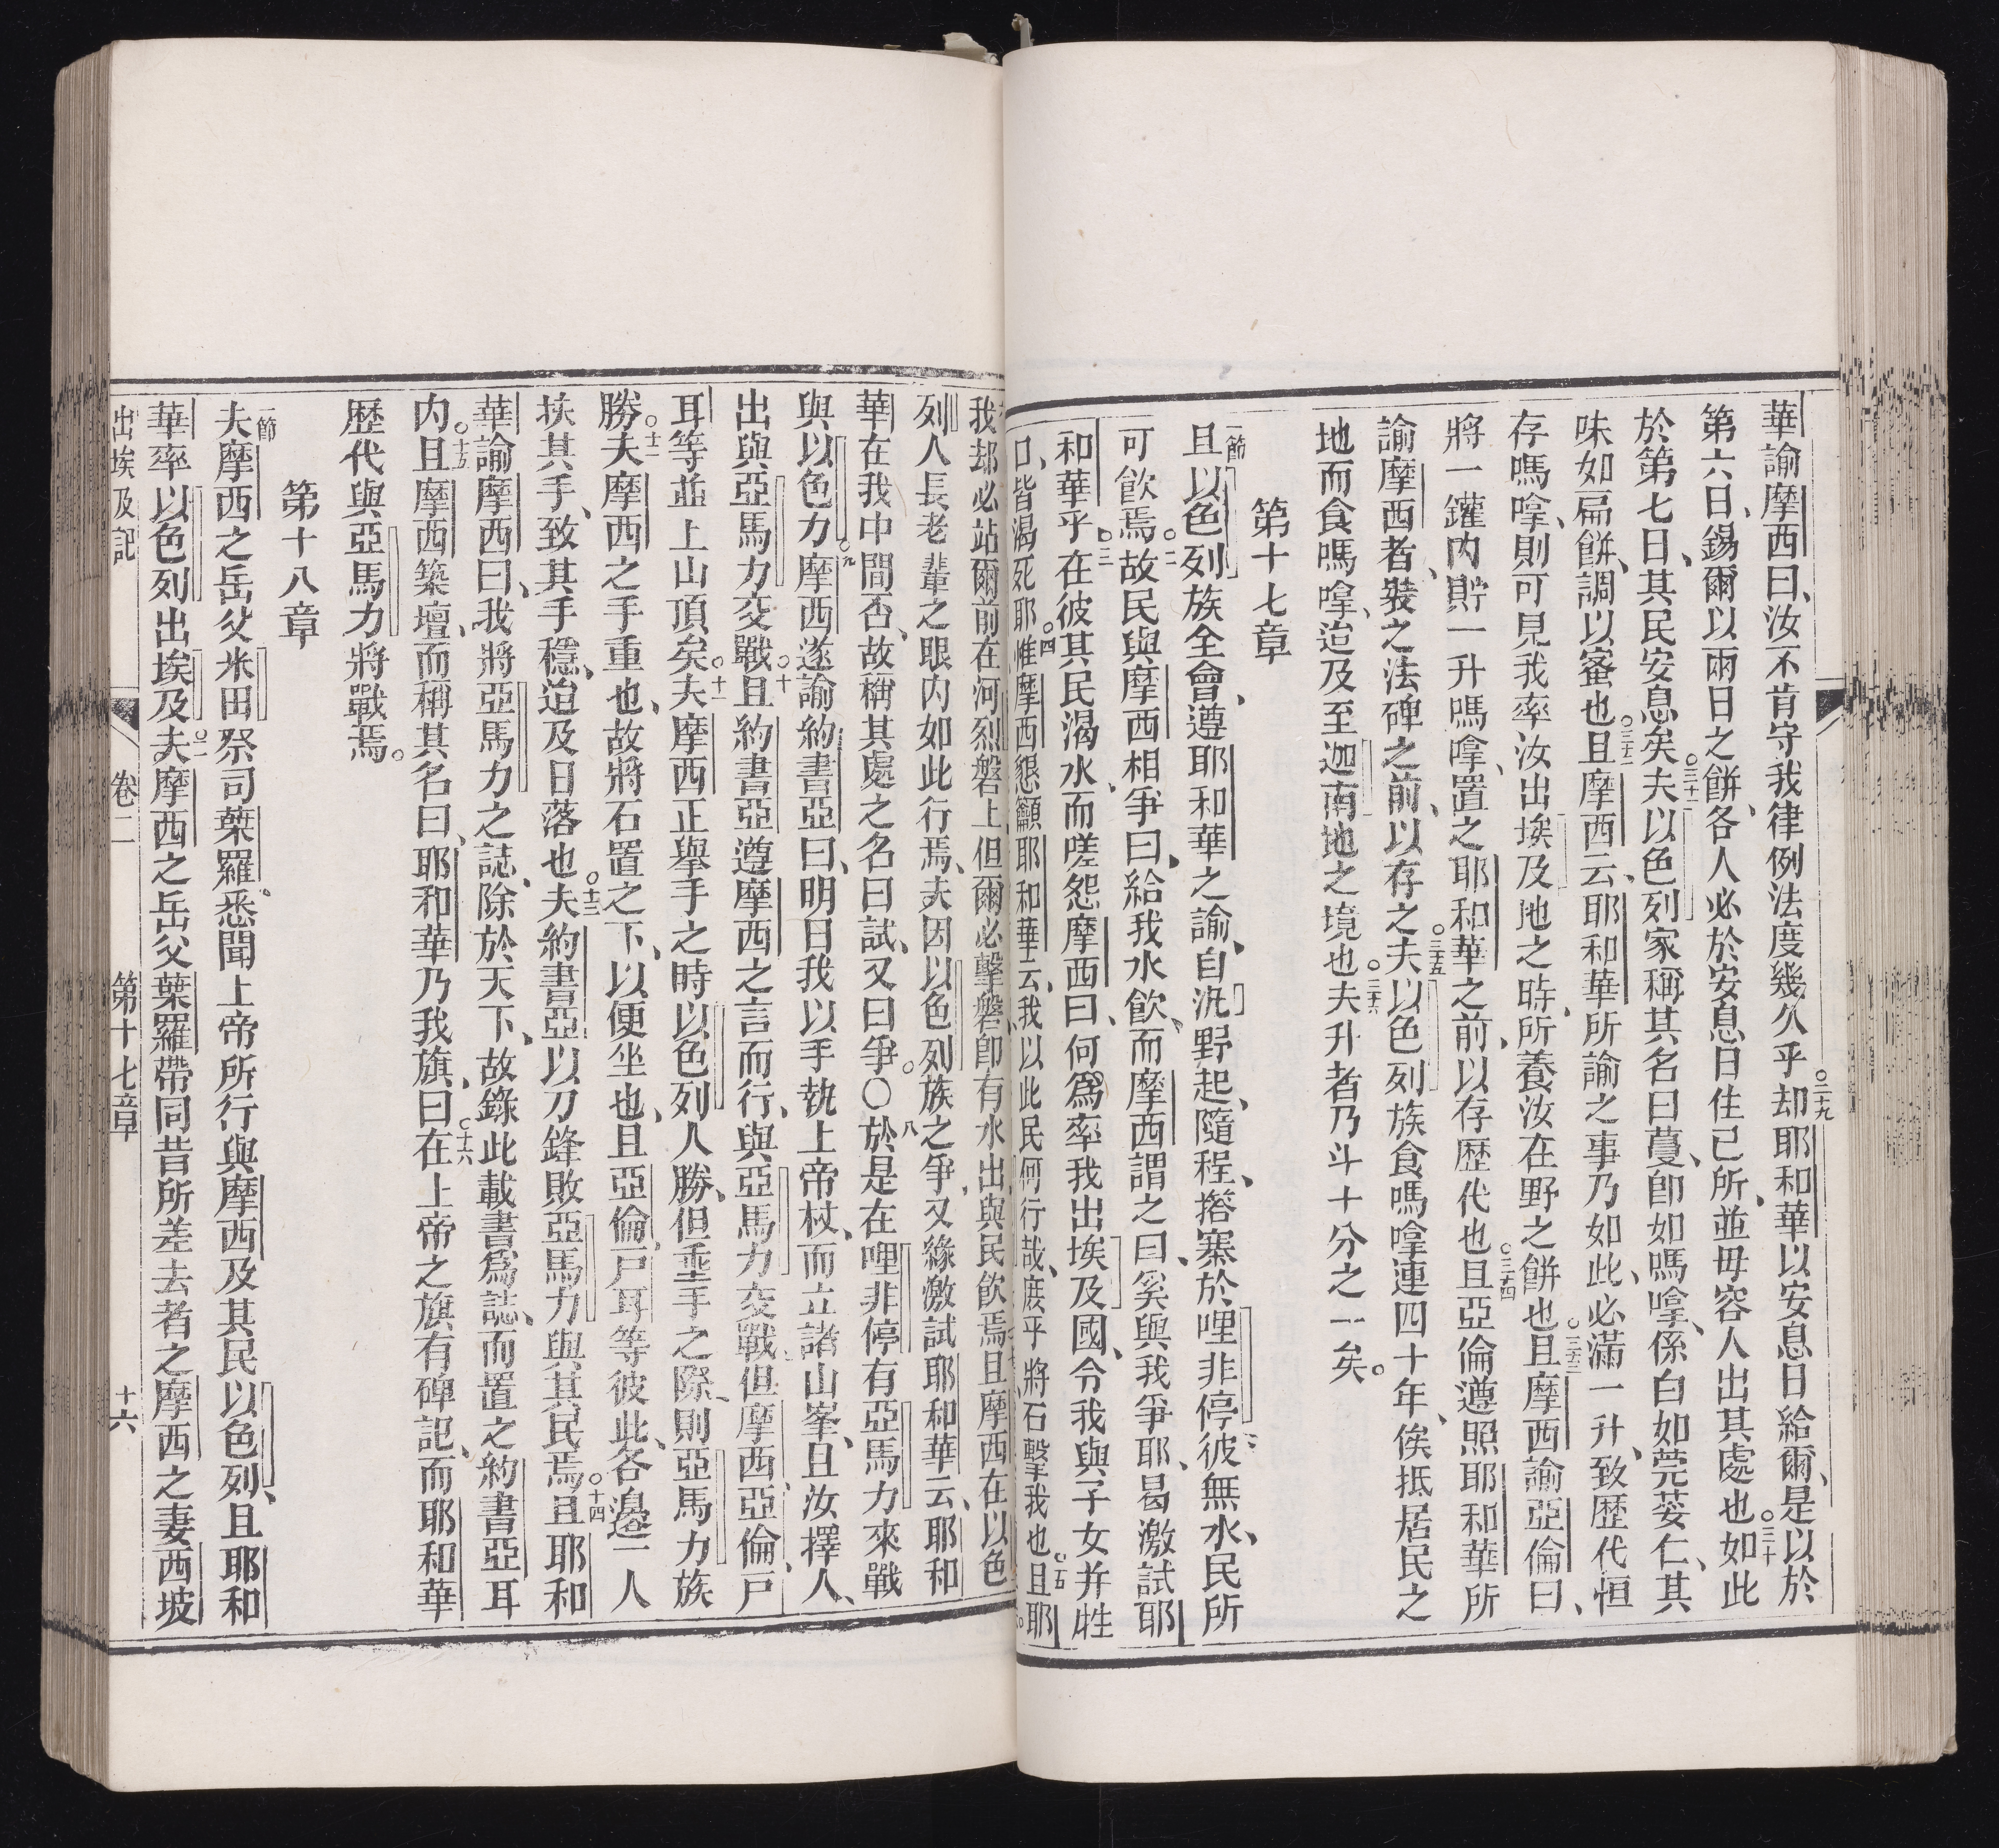 華諭摩西曰、汝不肯守我律例法度幾久乎○二十九却耶和華以安息日給爾、是以於
第六日、錫爾以兩日之餅、各人必於安息日住已所、並毋容人出其處也○三十如此
於第七日、其民安息矣○三十一夫以色列家稱其名曰蔓、卽如嗎嗱、係白如莞荽仁、其
味如扁餅、調以蜜也○三十二且摩西云、耶和華所諭之事乃如此、必滿一升、致歷代恒
存嗎嗱、則可見我率汝出埃及地之時、所養汝在野之餅也○三十三且摩西諭亞倫曰、
將一鑵內貯一升嗎嗱、置之耶和華之前、以存歷代也○三十四且亞倫遵照耶和華所
諭摩西者、裝之法碑之前、以存之○三十五夫以色列族食嗎嗱連四十年、俟抵居民之
地而食嗎嗱、迨及至迦南地之境也○三十六夫升者乃斗十分之一矣。
第十七章
一節且以色列族全會、遵耶和華之諭、自汛野起、隨程、搭寨於哩非停、彼無水、民所
可飲焉○二故民與摩西相爭曰、給我水飲、而摩西謂之曰、奚與我爭耶、曷激試耶
和華乎○三在彼其民渴水、而嗟怨摩西曰、何爲率我出埃及國、令我與子女并牲
口、皆渴死耶○四惟摩西懇籲耶和華云、我以此民何行哉、庶乎將石擊我也○五且耶
我却必站爾前在河烈磐上、但爾必擊磐、卽有水出、與民飲焉、且摩西在以色
列人長老輩之眼內如此行焉、夫因以色列族之爭、又緣激試耶和華云、耶和
華在我中間否、故稱其處之名曰試、又曰爭。○八於是在哩非停有亞馬力來戰
與以色力○九摩西遂諭約書亞曰、明日我以手執上帝杖、而立諸山峯、且汝擇人、
出與亞馬力交戰○十且約書亞遵摩西之言而行、與亞馬力交戰、但摩西、亞倫、戸
耳等並上山頂矣○十一夫摩西正舉手之時以色列人勝、但垂手之際、則亞馬力族
勝○十二夫摩西之手重也、故將石置之下、以便坐也、且亞倫戸耳等彼此、各邊一人
扶其手、致其手穩、迨及日落也○十三夫約書亞以刀鋒敗亞馬力與其民焉○十四且耶和
華諭摩西曰、我將亞馬力之誌、除於天下、故錄此載書爲誌、而置之約書亞耳
內○十五且摩西築壇、而稱其名曰、耶和華乃我旗、○十六曰在上帝之旗有碑記、而耶和華
歷代與亞馬力將戰焉。
第十八章
一節夫摩西之岳父米田祭司葉羅、悉聞上帝所行與摩西及其民以色列、且耶和
華率以色列出埃及○二夫摩西之岳父葉羅帶同昔所差去者之摩西之妻西坡
出埃及記 卷二 第十七章 十六